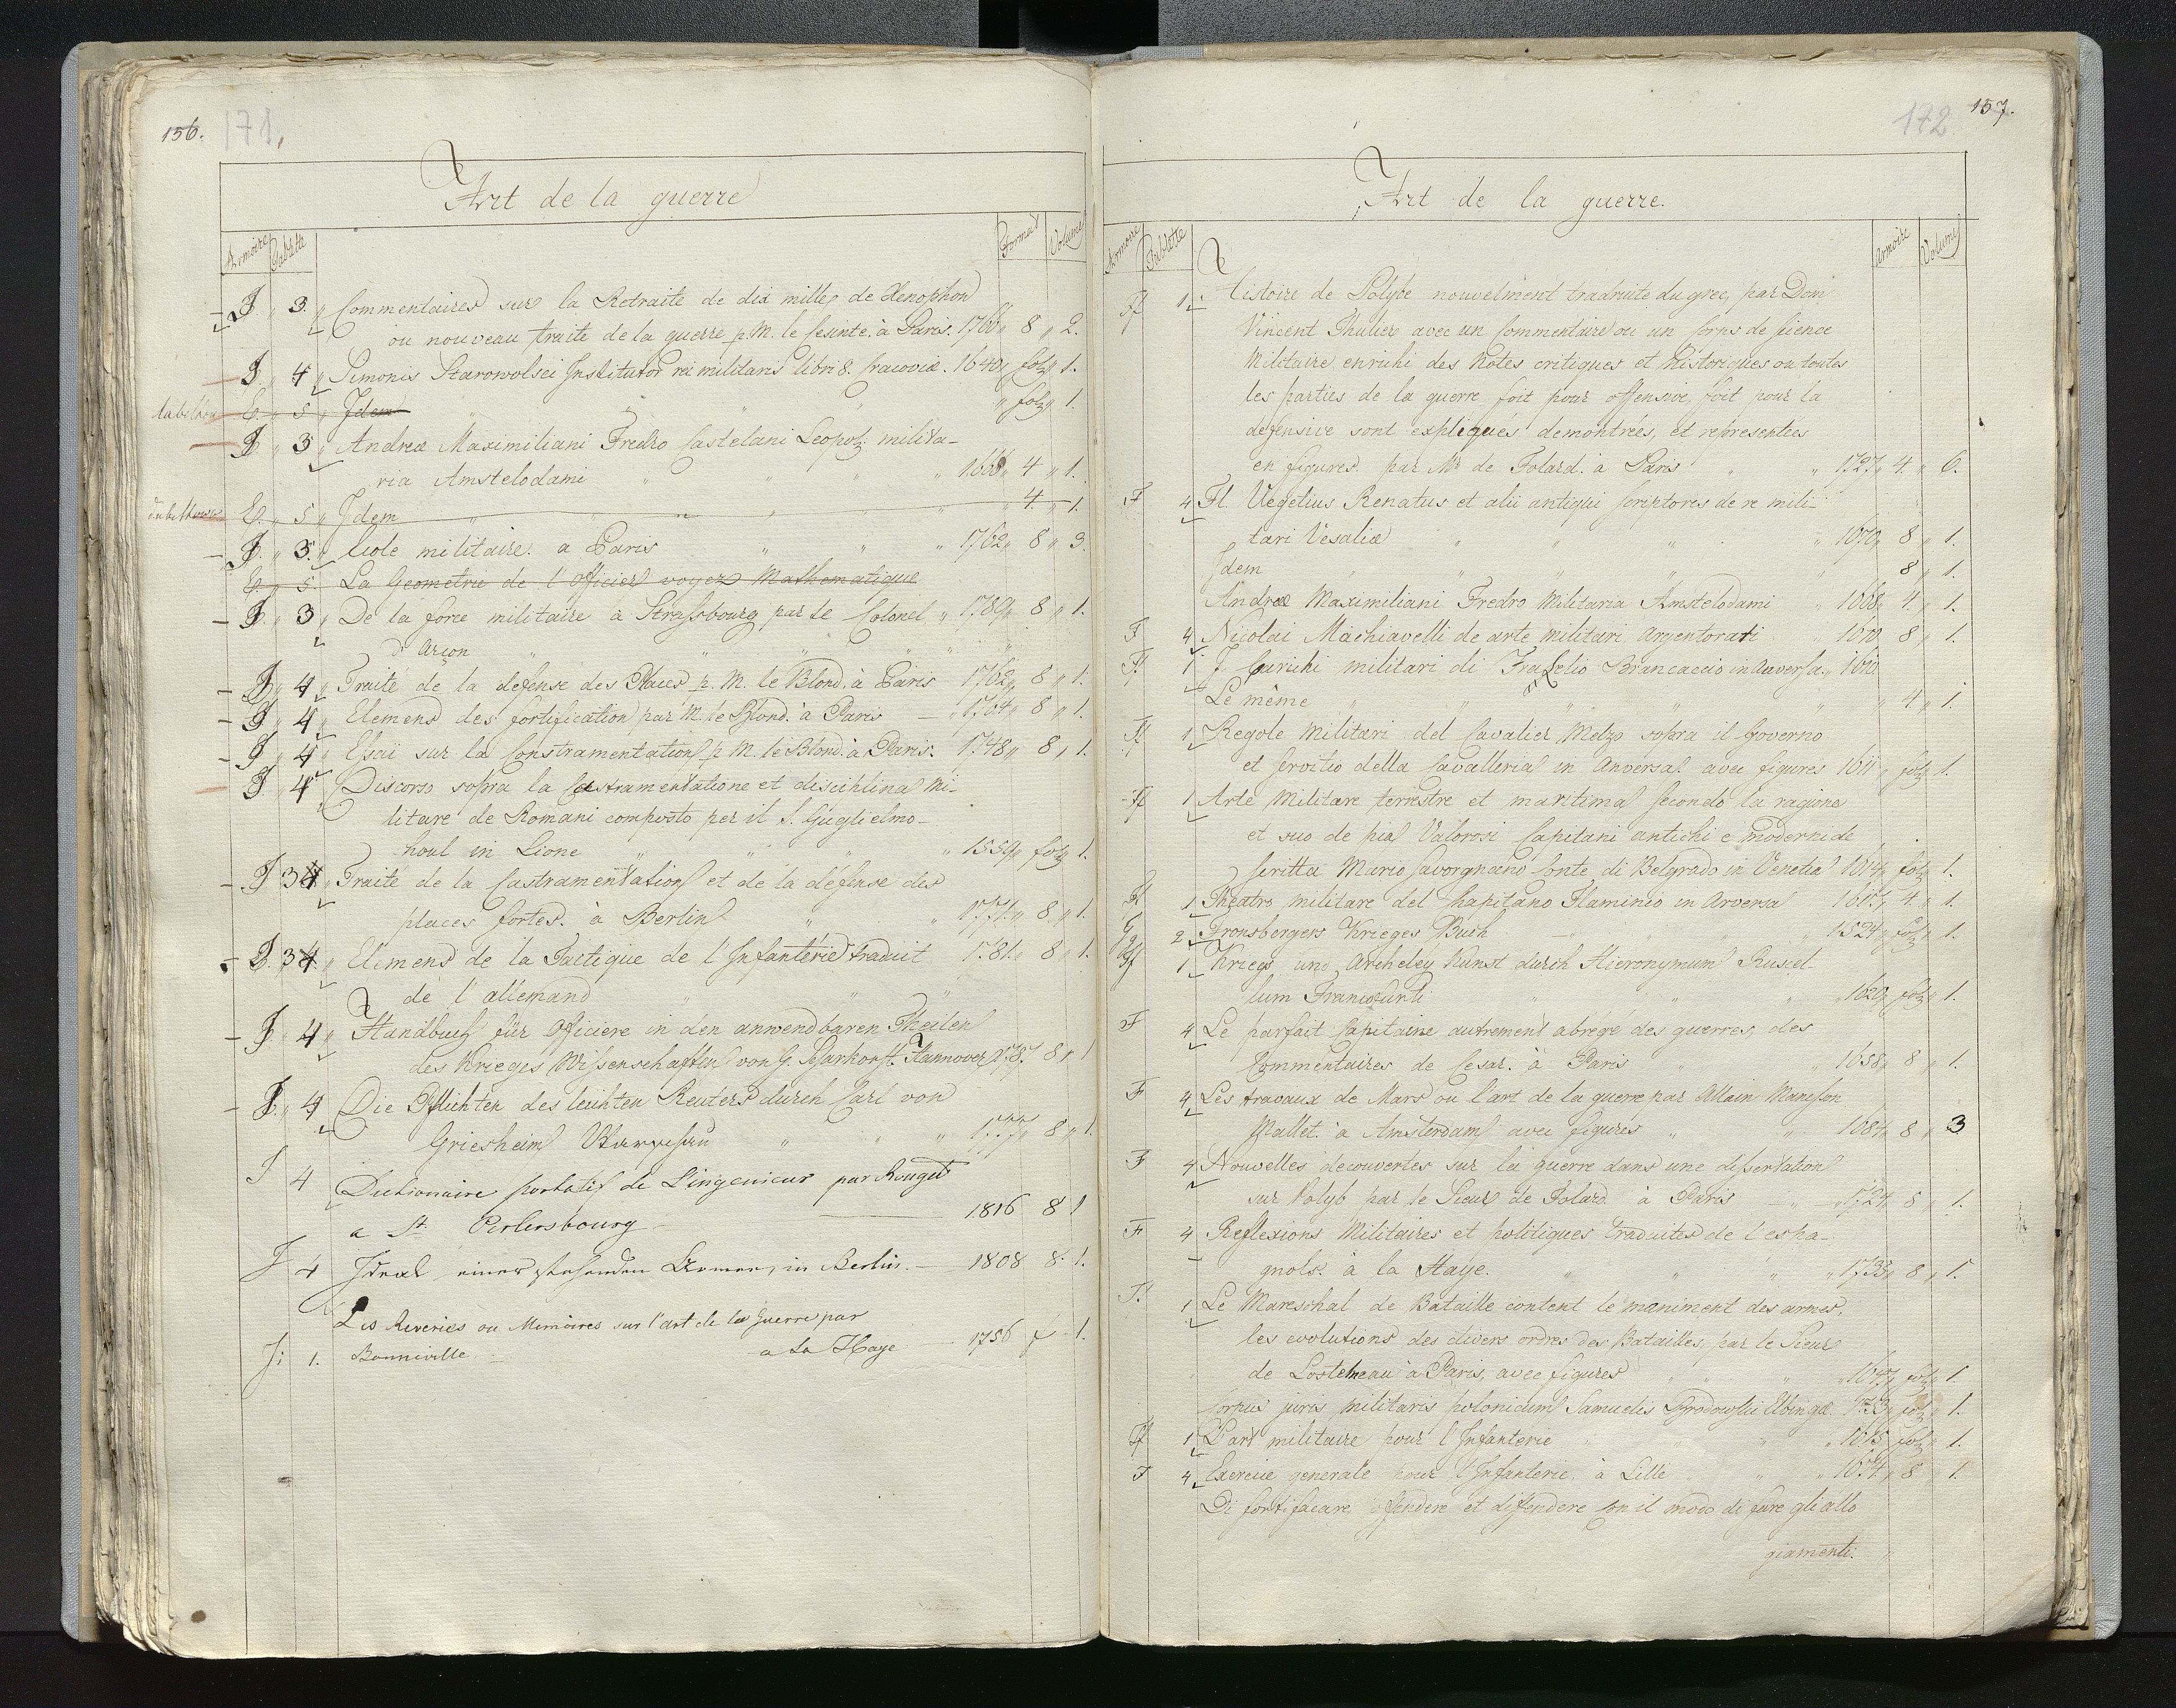 156. 171.
Art de la guerre
Armoire Tablette Format Volume
J „ 3. „ Commentaires sur la Retraite de dix milles de Xenophon
ou nouveau traite de la guerre p. M. le Cesinte. à Paris. 1766 „ 8 „ 2.
J „ 4 „ Simonis Starowolsci Institutor rei militaris libri 8. Cracoviæ. 1640 „ fol „ 1.
E. „ 5 „ Idem „ „ fol „ 1.
J „ 3 „ Andreæ Maximiliani Fredro Castelani Leopol: milita-
ria Amstelodami „ „ „ 1668 „ 4 „ 1.
E. „ 5 „ Idem „ „ „ 4 „ 1
J. „ 3. „ Ecole militaire. a Paris „ „ „ 1762 „ 8 „ 3.
E. „ 5. La Geometrie de l'officier voyez Mathematique
J. „ 3 „ De la force militaire à Strassbourg par le Colonel „ 1789 „ 8 „ 1.
d'Arçon „ „ „
J „ 4 „ Traité de la defense des Places p. M. le Blond. à Paris 1762 „ 8 „ 1.
J „ 4 „ Elemens des fortification par M. le Blond. à Paris — „ 1764 „ 8 „ 1.
J „ 4 „ Esai sur la Constramentation p. M. le Blond. à Paris. 1748 „ 8 „ 1.
J. „ 4 Discorso sopra la Castramentatione et disciplina mi-
litare de Romani composto per il S. Guglielmo-
houl in Lione „ „ „ 1559 „ fol „ 1.
J 34 „ Traité de la Castramentation et de la défense des
places fortes. à Berlin „ „ 1771 „ 8 „ 1.
J. 34. „ Elemens de la Tactique de l'Infanterie traduit 1781 „ 8 „ 1.
de l'allemand „ „ „
J „ 4 „ Handbuch für Officiere in den anwendbaren Theilen
des Krieges Wissenschaften von G. Scharhorst. Hannover 1787 8 „ 1
J. „ 4 Die Pflichten des leichten Reuters durch Carl von
Griesheim Warschau „ „ „ 1777 „ 8 „ 1.
J 4 Dictionaire portatif de L'ingenieur par Rouget
a St. Petersbourg — 1816 8 1
J 4 Ideal einer stehenden Armee, in Berlin. — 1808 8. 1.
Les Reveries ou Memoires sur l'art de la Guerre par
J: 1. Bonneville — a La Haye — 1756 f. 1.
172 157.
Art de la guerre.
Armoire Tablette Armoire Volume
Ff 1. Histoire de Polybe nouvelment traduite du grec, par Dom
Vincent Thulier avec un Commentaire ou un Corps de sience
Militaire enrichi des Notes critiques et historiques ou toutes
les parties de la guerre soit pour offensive, soit pour la
defensive sont expliqués demontrées, et representées
en figures par Mr de Folard. à Paris „ „ 1727 „ 4 „ 6.
F 4 Fl. Vegetius Renatus et alii antiqui scriptores de re mili-
tari Vesaliæ „ „ „ „ 1670 „ 8 „ 1.
Idem „ „ „ „ 8 „ 1.
Andreæ Maximiliani Fredro Militaria Amstelodami „ 1668 „ 4 „ 1.
F 4 Nicolai Machiavelli de arte militari Argentorati 1610 8 „ 1.
Ff 1 J Carichi militari di Fra Lelio Brancaccio in Anversa. „ 1610
Le même „ „ „ „ 4 „ 1.
Ff 1 Regole Militari del Cavalier Melzo sopra il Governo
et servitio della Cavalleria in Anversa. avec figures 1611 „ fol „ 1.
Ff 1 Arte Militare terrestre et maritima secondo la ragione
et suo de pia Valorosi Capitani antichi e moderni de
scritta Mario Savorgnano Conte di Belgrado in Venetia 1614 „ fol 1.
Ff 1 Theatro militare del Capitano Flaminio in Anversa 1617 „ 4 „ 1.
Gg 2 Fronsbergers Krieges Buch — „ „ 1524 „ fol „ 1.
Ff 1 Kriegs und Archeley Kunst durch Hieronymum Ruscel-
lum Francofurti „ „ „ „ 1620 „ fol „ 1.
F 4 Le parfait Capitaine autrement abrége des guerres, des
Commentaires de Cesar. à Paris „ „ 1658 „ 8 „ 1.
F 4 Les travaux de Mars ou l'art de la guerre par Allain Manesson
Mallet. à Amsterdam avec figures „ „ 1684 „ 8 „ 3
F 4 Nouvelles decouvertes sur la guerre dans une dissertation
sur Polyb par le Sieur de Folard à Paris — „ — „ 1724 8 „ 1.
F 4 Reflexions Militaires et politiques traduites de l'espa-
gnols. à la Haye. „ „ „ „ 1735 „ 8 „ 1.
F. 1 Le Mareschal de Bataille content le maniment des armes,
les evolutions des divers ordres des Batailles, par le Sieur
de Lostelneau à Paris, avec figures „ „ „ 1647 „ fol „ 1.
Corpus juris militaris polonicum Samuelis Brodowski Elbingæ. 1753 „ fol „ 1.
Ff 1 L'art militaire pour l'Infanterie „ „ 1615 „ fol „ 1.
F 4 Exercice generale pour l'Infanterie, à Lille „ „ 1674 „ 8 „ 1.
Di fortificare offendere et diffendere con il modo di fare gli allo
giamenti. „